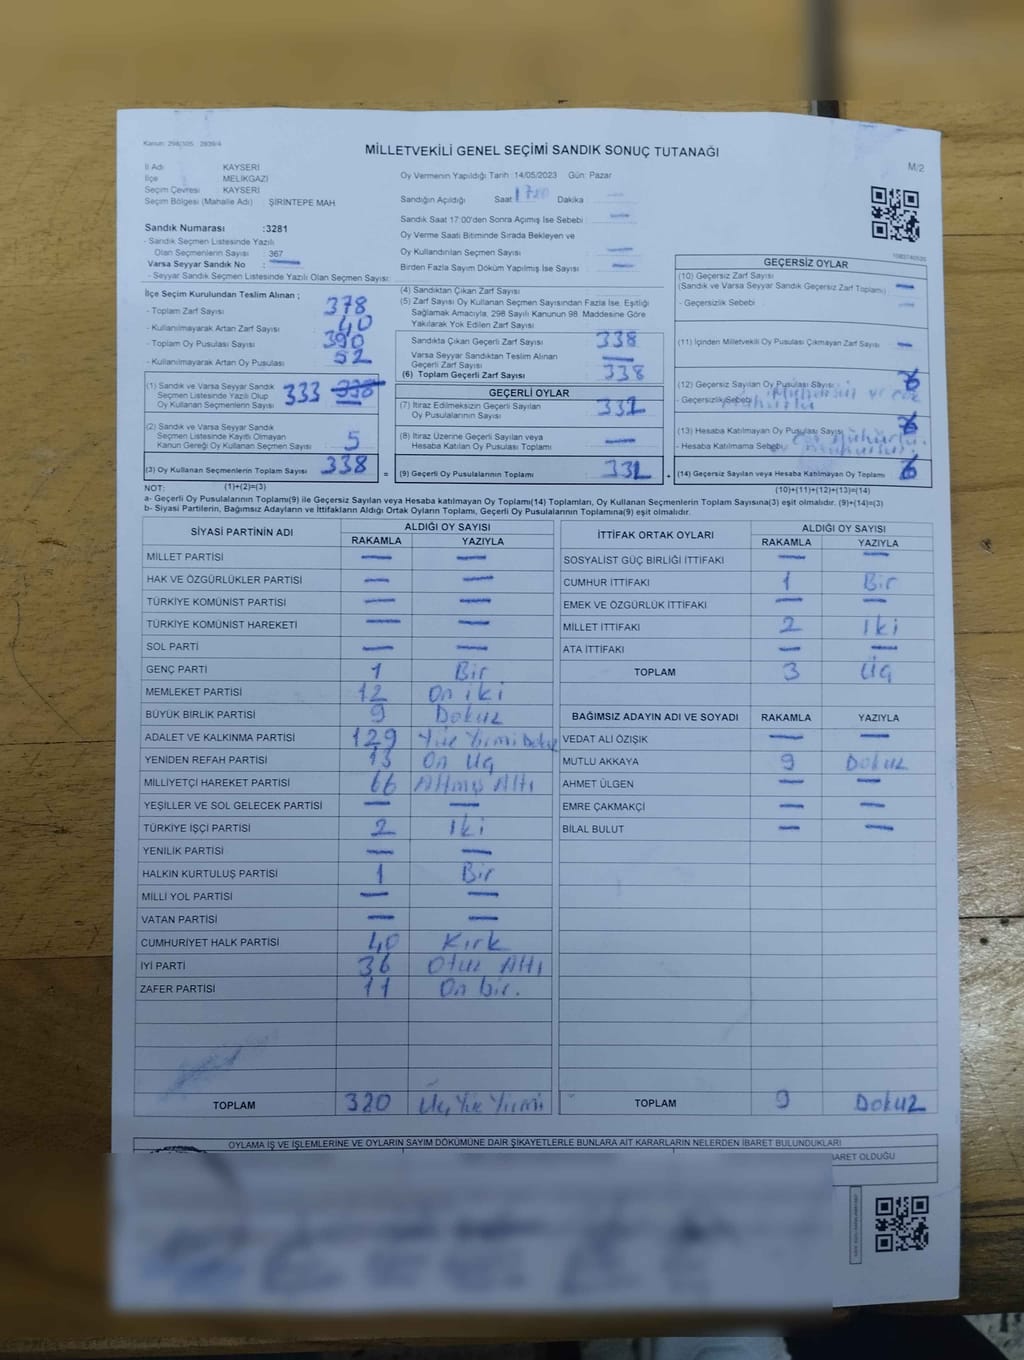 Kanun: 298/105 2839/4
MİLLETVEKİLİ GENEL SEÇİMİ SANDIK SONUÇ TUTANAĞI
M/2
İl Adı KAYSERİ
İlçe MELİKGAZİ
Seçim Çevresi : KAYSERİ
Seçim Bölgesi (Mahalle Adı) : ŞİRİNTEPE MAH
Sandık Numarası :3281
- Sandık Seçmen Listesinde Yazılı
Olan Seçmenlerin Sayısı : 367
Varsa Seyyar Sandık No : —
- Seyyar Sandık Seçmen Listesinde Yazılı Olan Seçmen Sayısı:
Oy Vermenin Yapıldığı Tarih :14/05/2023 Gün: Pazar
Sandığın Açıldığı Saat Dakika —
Sandık Saat 17:00'den Sonra Açımış İse Sebebi —
Oy Verme Saati Bitiminde Sırada Bekleyen ve
Oy Kullandırılan Seçmen Sayısı —
Birden Fazla Sayım Döküm Yapılmış İse Sayısı —
İlçe Seçim Kurulundan Teslim Alınan ;
- Toplam Zarf Sayısı 378
- Kullanılmayarak Artan Zarf Sayısı 40
- Toplam Oy Pusulası Sayısı 390
- Kullanılmayarak Artan Oy Pusulası 52
(1) Sandık ve Varsa Seyyar Sandık
Seçmen Listesinde Yazılı Olup
Oy Kullanan Seçmenlerin Sayısı 333 338
(2) Sandık ve Varsa Seyyar Sandık
Seçmen Listesinde Kayıtlı Olmayan
Kanun Gereği Oy Kullanan Seçmenlerin Sayısı 5
(3) Oy Kullanan Seçmenlerin Toplam Sayısı 338 =
(4) Sandıktan Çıkan Zarf Sayısı
(5) Zarf Sayısı Oy Kullanan Seçmen Sayısından Fazla İse, Eşitliği
Sağlamak Amacıyla, 298 Sayılı Kanunun 98. Maddesine Göre
Yakılarak Yok Edilen Zarf Sayısı
Sandıkta Çıkan Geçerli Zarf Sayısı 338
Varsa Seyyar Sandıktan Teslim Alınan
Geçerli Zarf Sayısı —
(6) Toplam Geçerli Zarf Sayısı 338
GEÇERLİ OYLAR
(7) İtiraz Edilmeksizin Geçerli Sayılan
Oy Pusulalarının Sayısı 332
(8) İtiraz Üzerine Geçerli Sayılan veya
Hesaba Katılan Oy Pusulası Sayısı —
(9) Geçerli Oy Pusulalarının Toplamı 332 +
GEÇERSİZ OYLAR
(10) Geçersiz Zarf Sayısı
(Sandık ve Varsa Seyyar Sandık Geçersiz Zarf Toplamı) —
- Geçersizlik Sebebi —
(11) İçinden Milletvekili Oy Pusulası Çıkmayan Zarf Sayısı —
(12) Geçersiz Sayılan Oy Pusulası Sayısı
- Geçersizlik Sebebi
(13) Hesaba Katılmayan Oy Pusulası Sayısı
- Hesaba Katılmama Sebebi
(14) Geçersiz Sayılan veya Hesaba Katılmayan Oy Toplamı 6
NOT: (1)+(2)=(3) (10)+(11)+(12)+(13)=(14)
a- Geçerli Oy Pusulalarının Toplamı(9) ile Geçersiz Sayılan veya Hesaba katılmayan Oy Toplamı(14) Toplamları, Oy Kullanan Seçmenlerin Toplam Sayısına(3) eşit olmalıdır. (9)+(14)=(3)
b- Siyasi Partilerin, Bağımsız Adayların ve İttifakların Aldığı Ortak Oyların Toplamı, Geçerli Oy Pusulalarının Toplamına(9) eşit olmalıdır.
SİYASİ PARTİNİN ADI ALDIĞI OY SAYISI
RAKAMLA YAZIYLA
MİLLET PARTİSİ — —
HAK VE ÖZGÜRLÜKLER PARTİSİ — —
TÜRKİYE KOMÜNİST PARTİSİ — —
TÜRKİYE KOMÜNİST HAREKETİ — —
SOL PARTİ — —
GENÇ PARTİ 1 Bir
MEMLEKET PARTİSİ 12 On iki
BÜYÜK BİRLİK PARTİSİ 9 Dokuz
ADALET VE KALKINMA PARTİSİ 129 Yüz Yirmi Dokuz
YENİDEN REFAH PARTİSİ 13 On Üç
MİLLİYETÇİ HAREKET PARTİSİ 66 Altmış Altı
YEŞİLLER VE SOL GELECEK PARTİSİ — —
TÜRKİYE İŞÇİ PARTİSİ 2 İki
YENİLİK PARTİSİ — —
HALKIN KURTULUŞ PARTİSİ 1 Bir
MİLLİ YOL PARTİSİ — —
VATAN PARTİSİ — —
CUMHURİYET HALK PARTİSİ 40 Kırk
İYİ PARTİ 36 Otuz Altı
ZAFER PARTİSİ 11 On bir.
TOPLAM 320 Üç Yüz Yirmi
İTTİFAK ORTAK OYLARI ALDIĞI OY SAYISI
RAKAMLA YAZIYLA
SOSYALİST GÜÇ BİRLİĞİ İTTİFAKI — —
CUMHUR İTTİFAKI 1 Bir
EMEK VE ÖZGÜRLÜK İTTİFAKI — —
MİLLET İTTİFAKI 2 İki
ATA İTTİFAKI — —
TOPLAM 3 Üç
BAĞIMSIZ ADAYIN ADI VE SOYADI RAKAMLA YAZIYLA
VEDAT ALİ ÖZIŞIK — —
MUTLU AKKAYA 9 Dokuz
AHMET ÜLGEN — —
EMRE ÇAKMAKÇİ — —
BİLAL BULUT — —
TOPLAM 9 Dokuz
OYLAMA İŞ VE İŞLEMLERİNE VE OYLARIN SAYIM DÖKÜMÜNE DAİR ŞİKAYETLERLE BUNLARA AİT KARARLARIN NELERDEN İBARET BULUNDUKLARI
BARET OLDUĞU